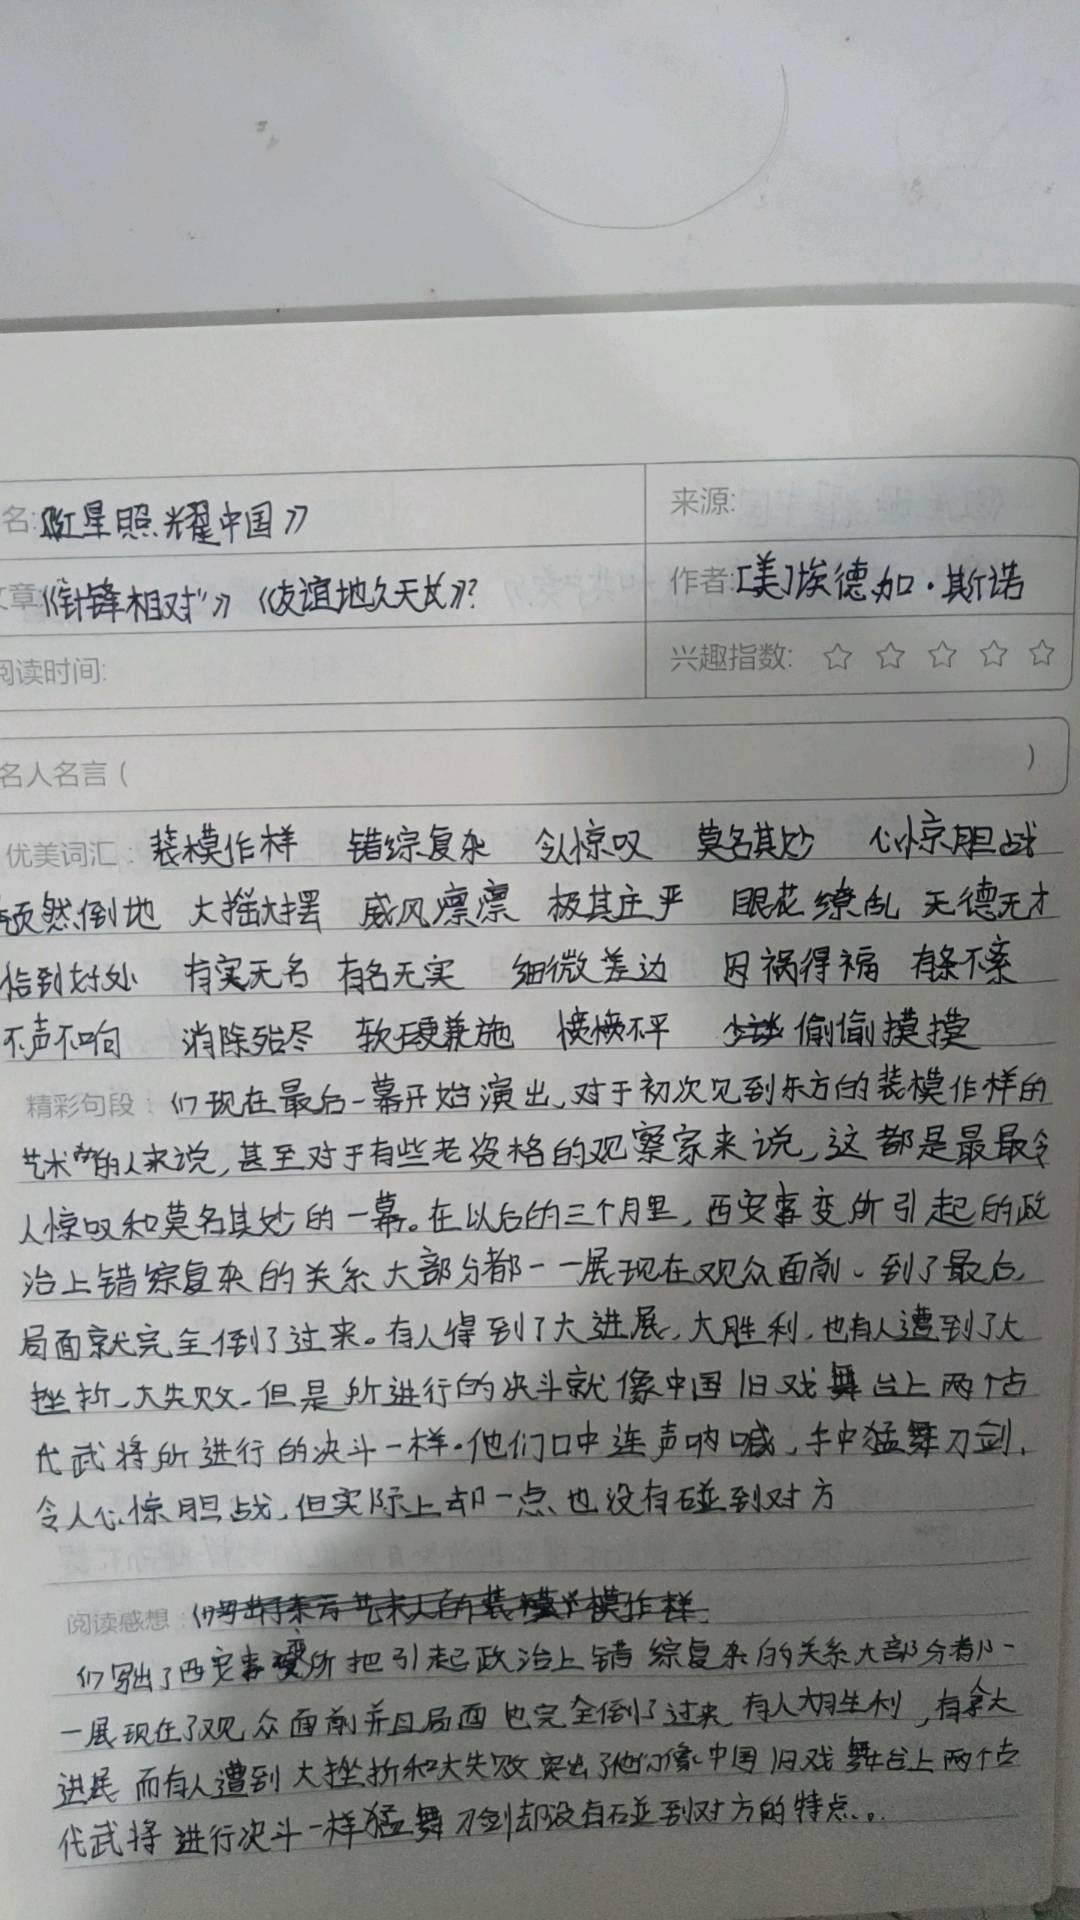 名:《红星照耀中国》 来源:
文章《"针锋相对"》《友谊地久天长》? 作者:[美]埃德加·斯诺
阅读时间: 兴趣指数: ☆ ☆ ☆ ☆ ☆
名人名言( )
优美词汇: 装模作样 错综复杂 令人惊叹 莫名其妙 心惊胆战
颓然倒地 大摇大摆 威风凛凛 极其庄严 眼花缭乱 无德无才
恰到好处 有实无名 有名无实 细微差边 因祸得福 有条不紊
不声不响 消除殆尽 软硬兼施 愤愤不平 偷偷摸摸
精彩句段: (1)现在最后一幕开始演出,对于初次见到东方的装模作样的
艺术的人来说,甚至对于有些老资格的观察家来说,这都是最最令
人惊叹和莫名其妙的一幕。在以后的三个月里,西安事变所引起的政
治上错综复杂的关系大部分都一一展现在观众面前、到了最后,
局面就完全倒了过来。有人得到了大进展,大胜利,也有人遭到了大
挫折、大失败.但是所进行的决斗就像中国旧戏舞台上两个古
代武将所进行的决斗一样.他们口中连声呐喊,手中猛舞刀剑,
令人心惊胆战,但实际上却一点也没有碰到对方
阅读感想:
(1)写出了西安事变所把引起政治上错综复杂的关系大部分都一
一展现在了观众面前并且局面也完全倒了过来,有人大胜利,有拿大
进展而有人遭到大挫折和大失败突出了他们像中国旧戏舞台上两个古
代武将进行决斗一样猛舞刀剑却没有碰到对方的特点。.